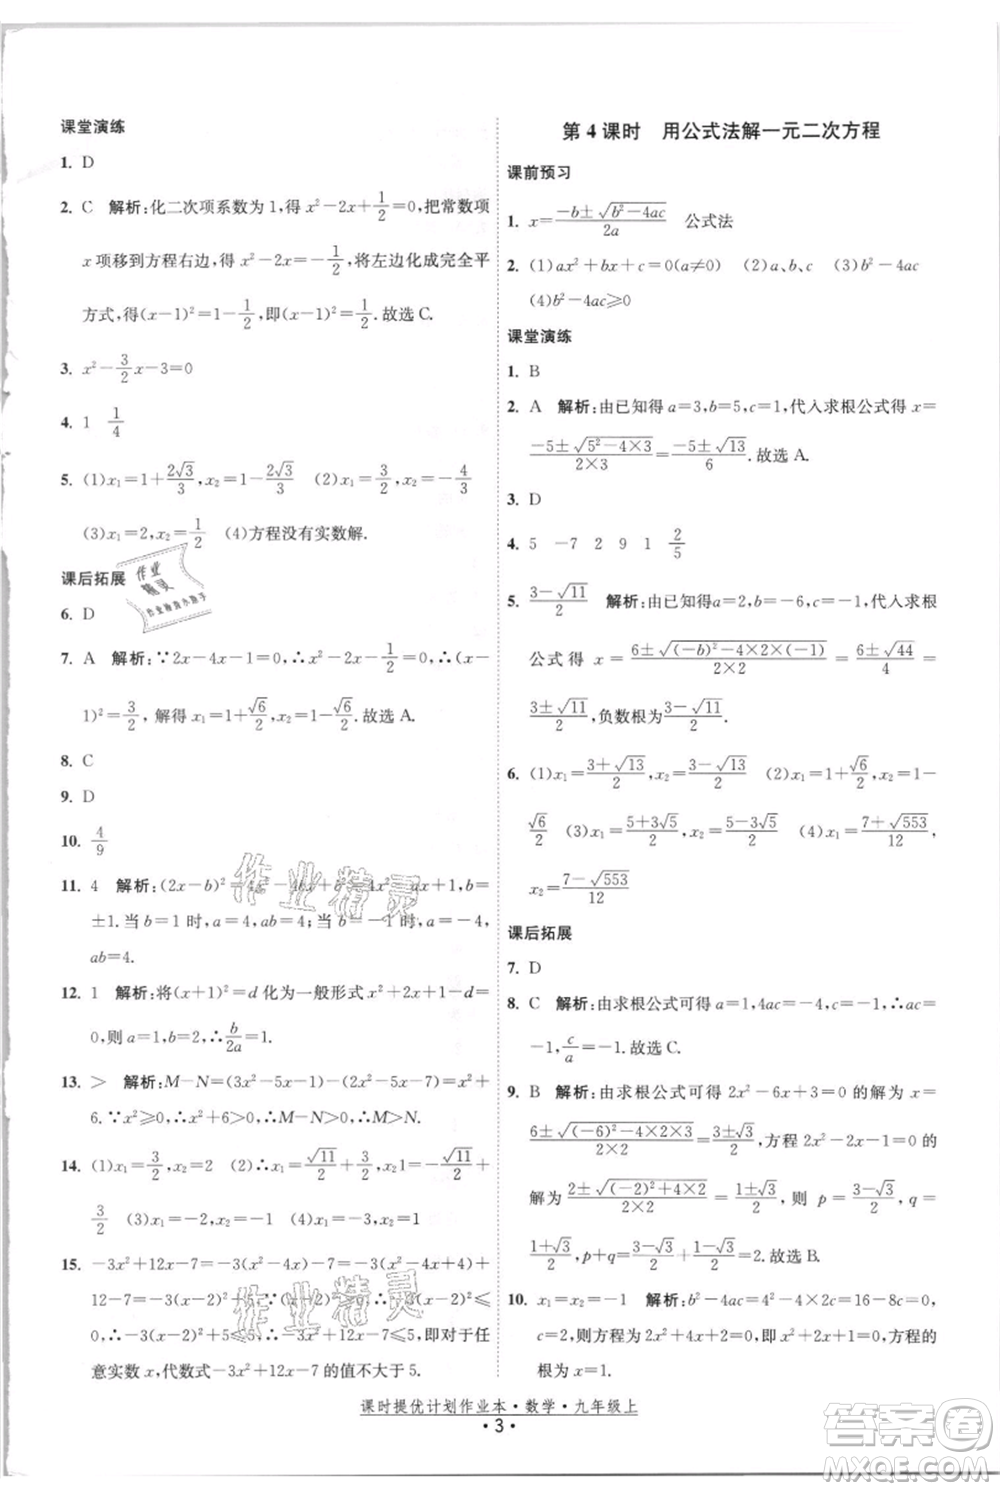 课堂演练
1. D
2. C 解析:化二次项系数为1,得 x²-2x+1/2=0,把常数项
x项移到方程右边,得 x²-2x=-1/2,将左边化成完全平
方式,得(x-1)²=1-1/2,即(x-1)²=1/2.故选C.
3. x²-3/2x-3=0
4. 1 1/4
5. (1)x₁=1+2√3/3,x₂=1-2√3/3 (2)x₁=3/2,x₂=-4/3
(3)x₁=2,x₂=1/2 (4)方程没有实数解.
课后拓展
6. D
7. A 解析:∵2x-4x-1=0,∴x²-2x-1/2=0,∴(x-
1)²=3/2,解得 x₁=1+√6/2,x₂=1-√6/2.故选A.
8. C
9. D
10. 4/9
11. 4 解析:(2x-b)²=4x²-4bx+b²=ax+1,b=
±1.当b=1时,a=4,ab=4;当b=-1时,a=-4,
ab=4.
12. 1 解析:将(x+1)²=d化为一般形式x²+2x+1-d=
0,则a=1,b=2,∴b/2a=1.
13. > 解析:M-N=(3x²-5x-1)-(2x²-5x-7)=x²+
6.∵x²≥0,∴x²+6>0,∴M-N>0,∴M>N.
14. (1)x₁=3/2,x₂=2 (2)∴x₁=√11/2+3/2,x₂=-√11/2+
3/2 (3)x₁=-2,x₂=-1 (4)x₁=x₂=9
15. -3x²+12x-7=-3(x²-4x)-7=-3(x²-4x+4)+
12-7=-3(x-2)²+5.∵(x-2)²≥0,∴-3(x-2)²≤
0,∴-3(x-2)²+5≤5,即-3x²+12x-7≤5.即对于任
意实数x,代数式-3x²+12x-7的值不大于5.
第4课时 用公式法解一元二次方程
课前预习
1. x=-b±√b²-4ac/2a 公式法
2. (1)ax²+bx+c=0(a≠0) (2)a、b、c (3)b²-4ac
(4)b²-4ac≥0
课堂演练
1. B
2. A 解析:由已知得a=3,b=5,c=1,代入求根公式得 x=
-5±√5²-4×3/2×3=-5±√13/6.故选A.
3. D
4. 5 -7 2 9 1 2/5
5. 3-√11/2 解析:由已知得a=2,b=-6,c=-1,代入求根
公式得 x=6±√(-b)²-4×2×(-1)/2×2=6±√44/4=
3±√11/2,负数根为3-√11/2.
6. (1)x₁=3+√13/2,x₂=3-√13/2 (2)x₁=1+√6/2,x₂=1-
√6/2 (3)x₁=5+3√5/2,x₂=5-3√5/2 (4)x₁=7+√553/12,
x₂=7-√553/12
课后拓展
7. D
8. C 解析:由求根公式可得a=1,4ac=-4,c=-1,∴ac=
-1,c/a=-1.故选C.
9. B 解析:由求根公式可得 2x²-6x+3=0 的解为 x=
6±√(-6)²-4×2×3/2×2=3±√3/2,方程 2x²-2x-1=0的
解为2±√(-2)²+4×2/2×2=1±√3/2,则 p=3-√3/2,q=
1+√3/2.故选B.
10. x₁=x₂=-1 解析:b²-4ac=b²-12b+20-8c=0,
c=2,则方程为x²+4x+2=0,即x²-2x+1=0,∴方程的
根为x=1.
课时提优计划作业本·数学·九年级上
·3·
作业
精灵
作业精灵
作业精灵
答案卷
MXQE.COM